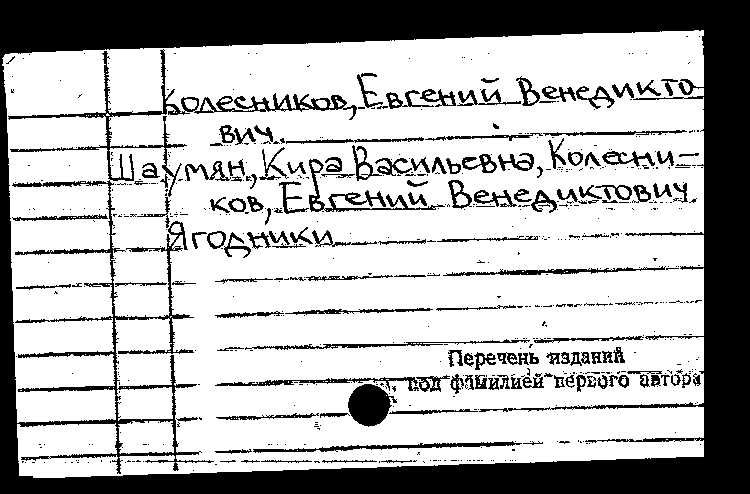 Колесников, Евгений Венедикто
вич.
Шаумян, Кира Васильевна, Колесни-
ков, Евгений Венедиктович
Ягодники
Перечень изданий
под фамилией первого автора